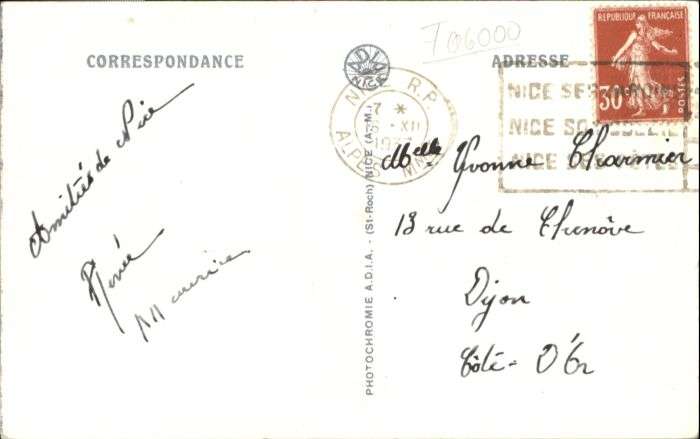 CORRESPONDANCE
ADRESSE
706000
ADIA
NICE
RÉPUBLIQUE FRANÇAISE
30
POSTES
NICE R.P.
7 *
XII
ALPES MMES
NICE SES
NICE SO
NICE SES
Amitiés de Nice
Renée
Maurice
Melle Yvonne Charmier
13 rue de Chenôve
Dijon
Côte-D'Or
PHOTOCHROMIE A.D.I.A. - (St-Roch) NICE (A.-M.)